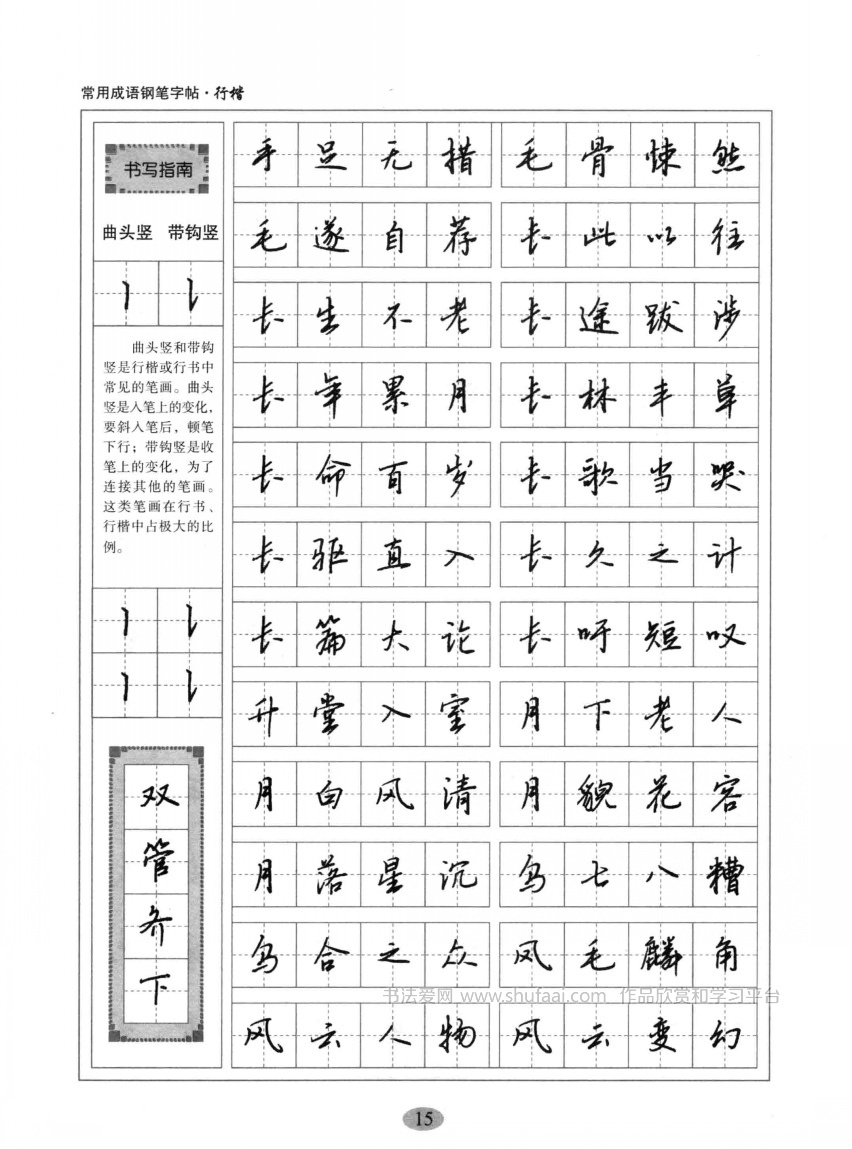 常用成语钢笔字帖·行楷
书写指南
曲头竖 带钩竖
曲头竖和带钩
竖是行楷或行书中
常见的笔画。曲头
竖是入笔上的变化，
要斜入笔后，顿笔
下行；带钩竖是收
笔上的变化，为了
连接其他的笔画。
这类笔画在行书、
行楷中占极大的比
例。
双
管
齐
下
手足无措 毛骨悚然
毛遂自荐 长此以往
长生不老 长途跋涉
长年累月 长林丰草
长命百岁 长歌当哭
长驱直入 长久之计
长篇大论 长吁短叹
升堂入室 月下老人
月白风清 月貌花容
月落星沉 乌七八糟
乌合之众 凤毛麟角
风云人物 风云变幻
书法爱网 www.shufaai.com 作品欣赏和学习平台
15